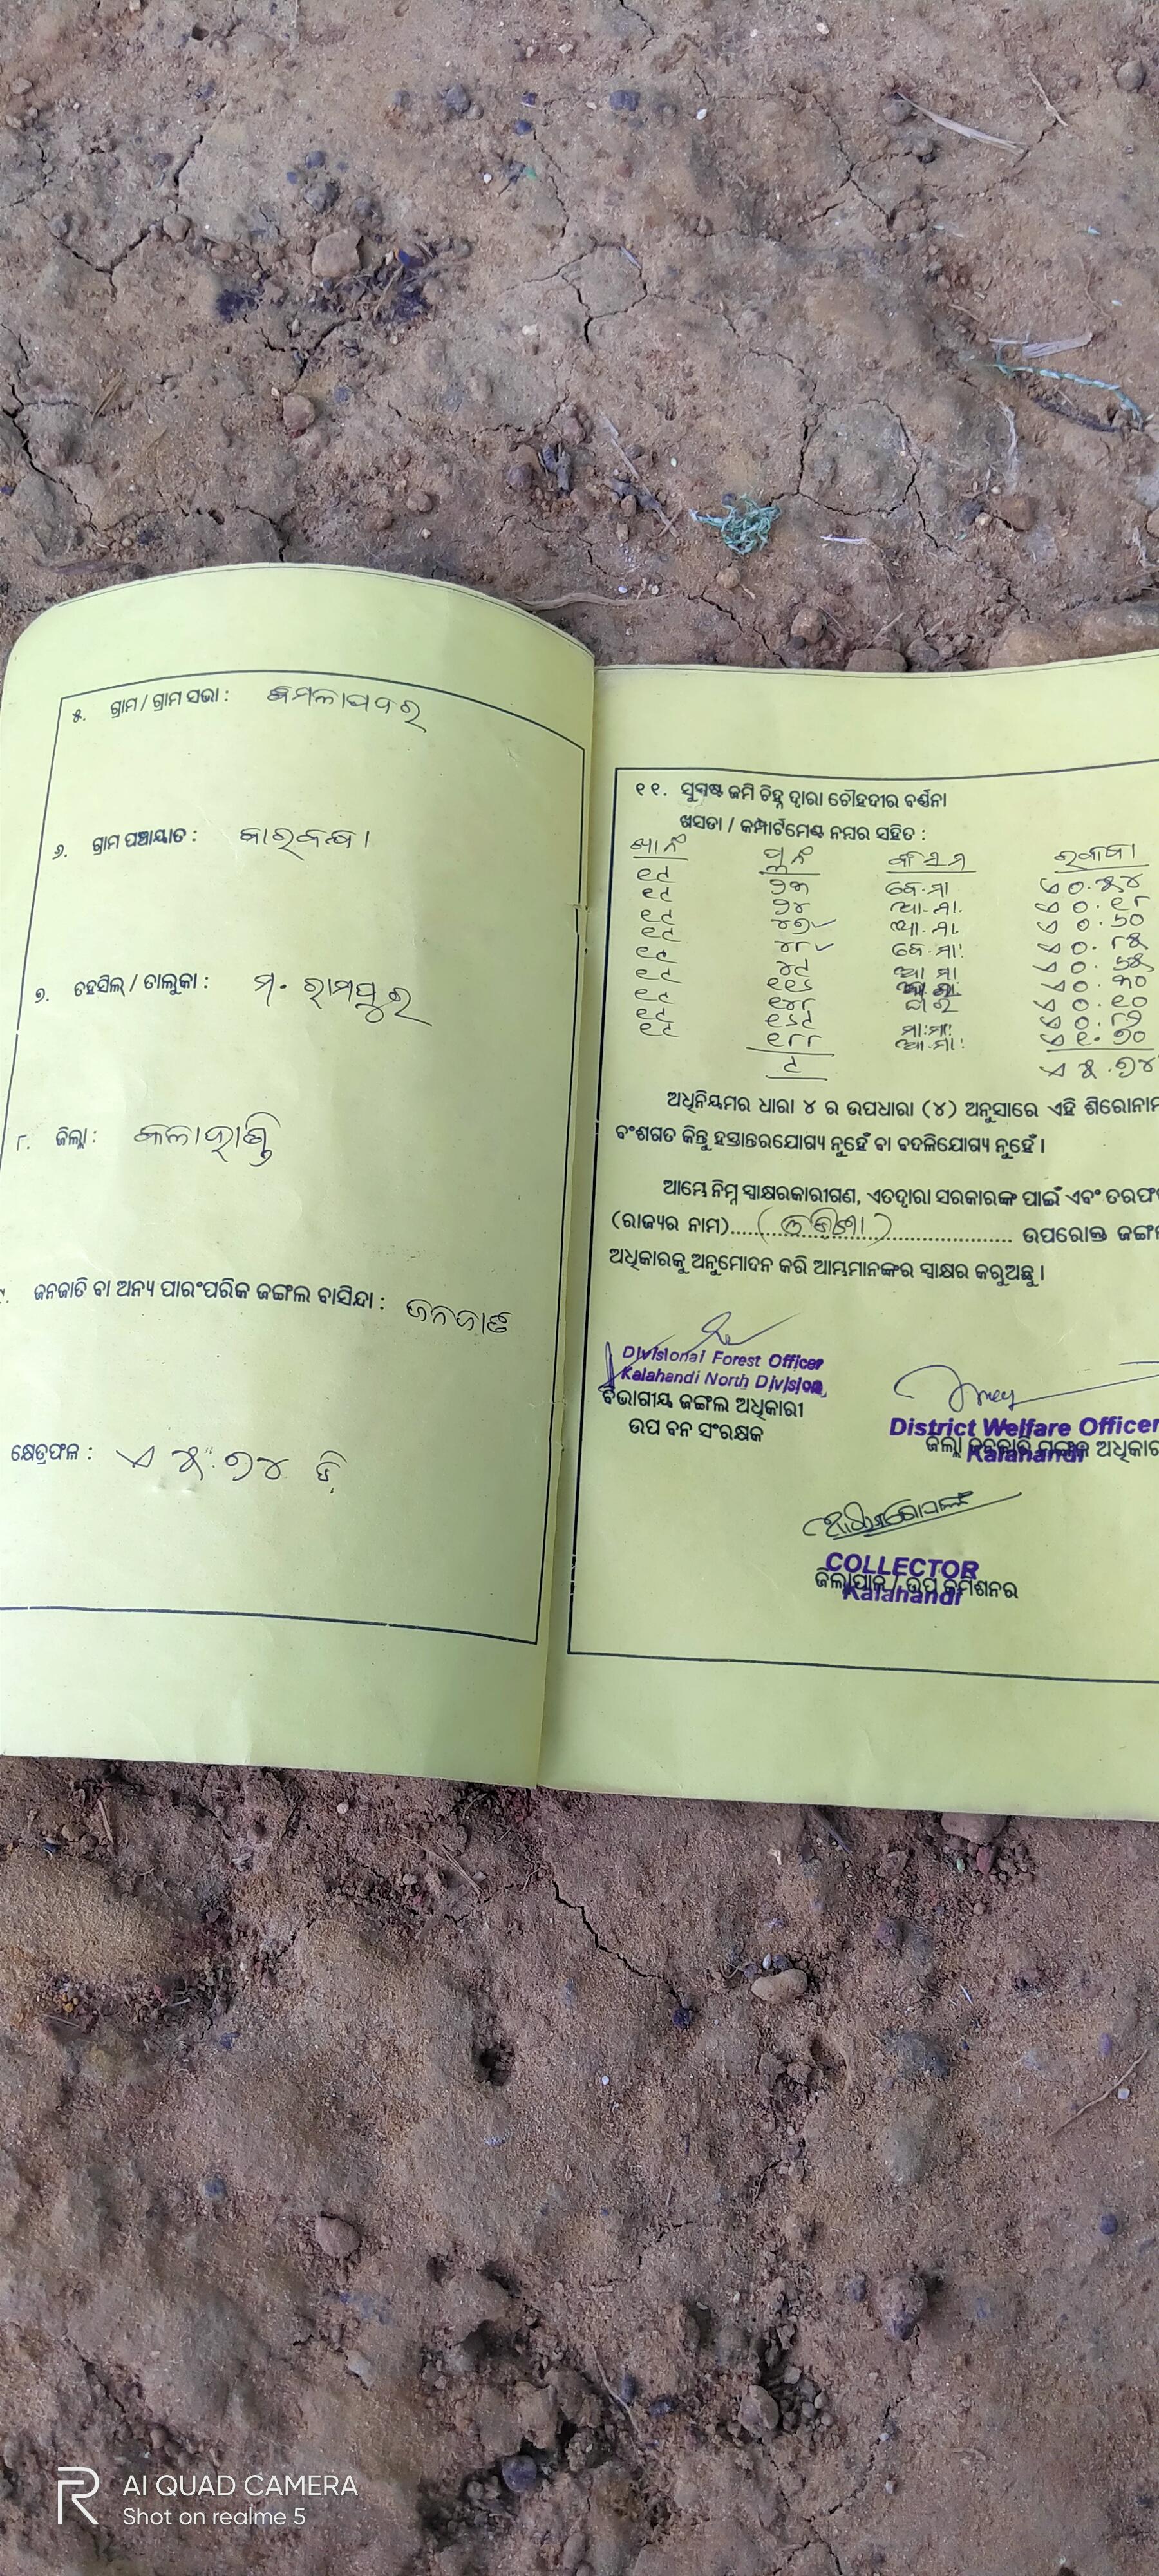 ୫. ଗ୍ରାମ / ଗ୍ରାମ ସଭା : କମଳାପଦର
୬. ଗ୍ରାମ ପଞ୍ଚାୟାତ :
୭. ତହସିଲ୍ / ତାଲୁକା : ମ. ରାମପୁର
୮. ଜିଲ୍ଲା : କଳାହାଣ୍ଡି
୯. ଜନଜାତି ବା ଅନ୍ୟ ପାରଂପରିକ ଜଙ୍ଗଲ ବାସିନ୍ଦା : ଜନଜାତି
କ୍ଷେତ୍ରଫଳ : ଏ ୫.୭୪ ଡି
୧୧. ସୁସ୍ପଷ୍ଟ ଜମି ଚିହ୍ନ ଦ୍ୱାରା ଚୌହଦୀର ବର୍ଣ୍ଣନା
ଖସଡା / କମ୍ପାର୍ଟମେଣ୍ଟ ନମ୍ବର ସହିତ :
ଖା ନଂ ପ୍ଲ ନଂ କିସମ ରକବା
୧୯ ୨୩ ବେ.ମା
୧୯ ୨୪ ଆ.ମା. ଏ ୦.୧୮
୧୯ ୪୭ ଆ.ମା. ଏ ୦.୬୦
୧୯ ୪୮ ବେ.ମା. ଏ ୦.୮୫
୧୯ ୪୯ ଆ ମା ଏ ୦.୬୫
୧୯ ୧୧୬ ଏ ୦.୩୦
୧୯ ୧୪୮ ଏ ୦.୧୦
୧୯ ୧୬୯ ମା.ମା. ଏ ୦.୮୨
୧୯ ୧୮୮ ଆ.ମା. ଏ ୧.୭୦
୯ ଏ ୫.୭୪
ଅଧିନିୟମର ଧାରା ୪ ର ଉପଧାରା (୪) ଅନୁସାରେ ଏହି ଶିରୋନାମ
ବଂଶଗତ କିନ୍ତୁ ହସ୍ତାନ୍ତରଯୋଗ୍ୟ ନୁହେଁ ବା ବଦଳିଯୋଗ୍ୟ ନୁହେଁ ।
ଆମ୍ଭେ ନିମ୍ନ ସ୍ୱାକ୍ଷରକାରୀଗଣ, ଏତଦ୍ୱାରା ସରକାରଙ୍କ ପାଇଁ ଏବଂ ତରଫ
(ରାଜ୍ୟର ନାମ)....(ଓଡିଶା).... ଉପରୋକ୍ତ ଜଙ୍ଗଲ
ଅଧିକାରକୁ ଅନୁମୋଦନ କରି ଆମ୍ଭମାନଙ୍କର ସ୍ୱାକ୍ଷର କରୁଅଛୁ ।
Divisional Forest Officer
Kalahandi North Division
ବିଭାଗୀୟ ଜଙ୍ଗଲ ଅଧିକାରୀ
ଉପ ବନ ସଂରକ୍ଷକ
District Welfare Officer
ଜିଲ୍ଲା ଜନଜାତି ମଙ୍ଗଳ ଅଧିକାର
Kalahandi
COLLECTOR
ଜିଲ୍ଲାପାଳ / ଉପ କମିଶନର
Kalahandi
AI QUAD CAMERA
Shot on realme 5